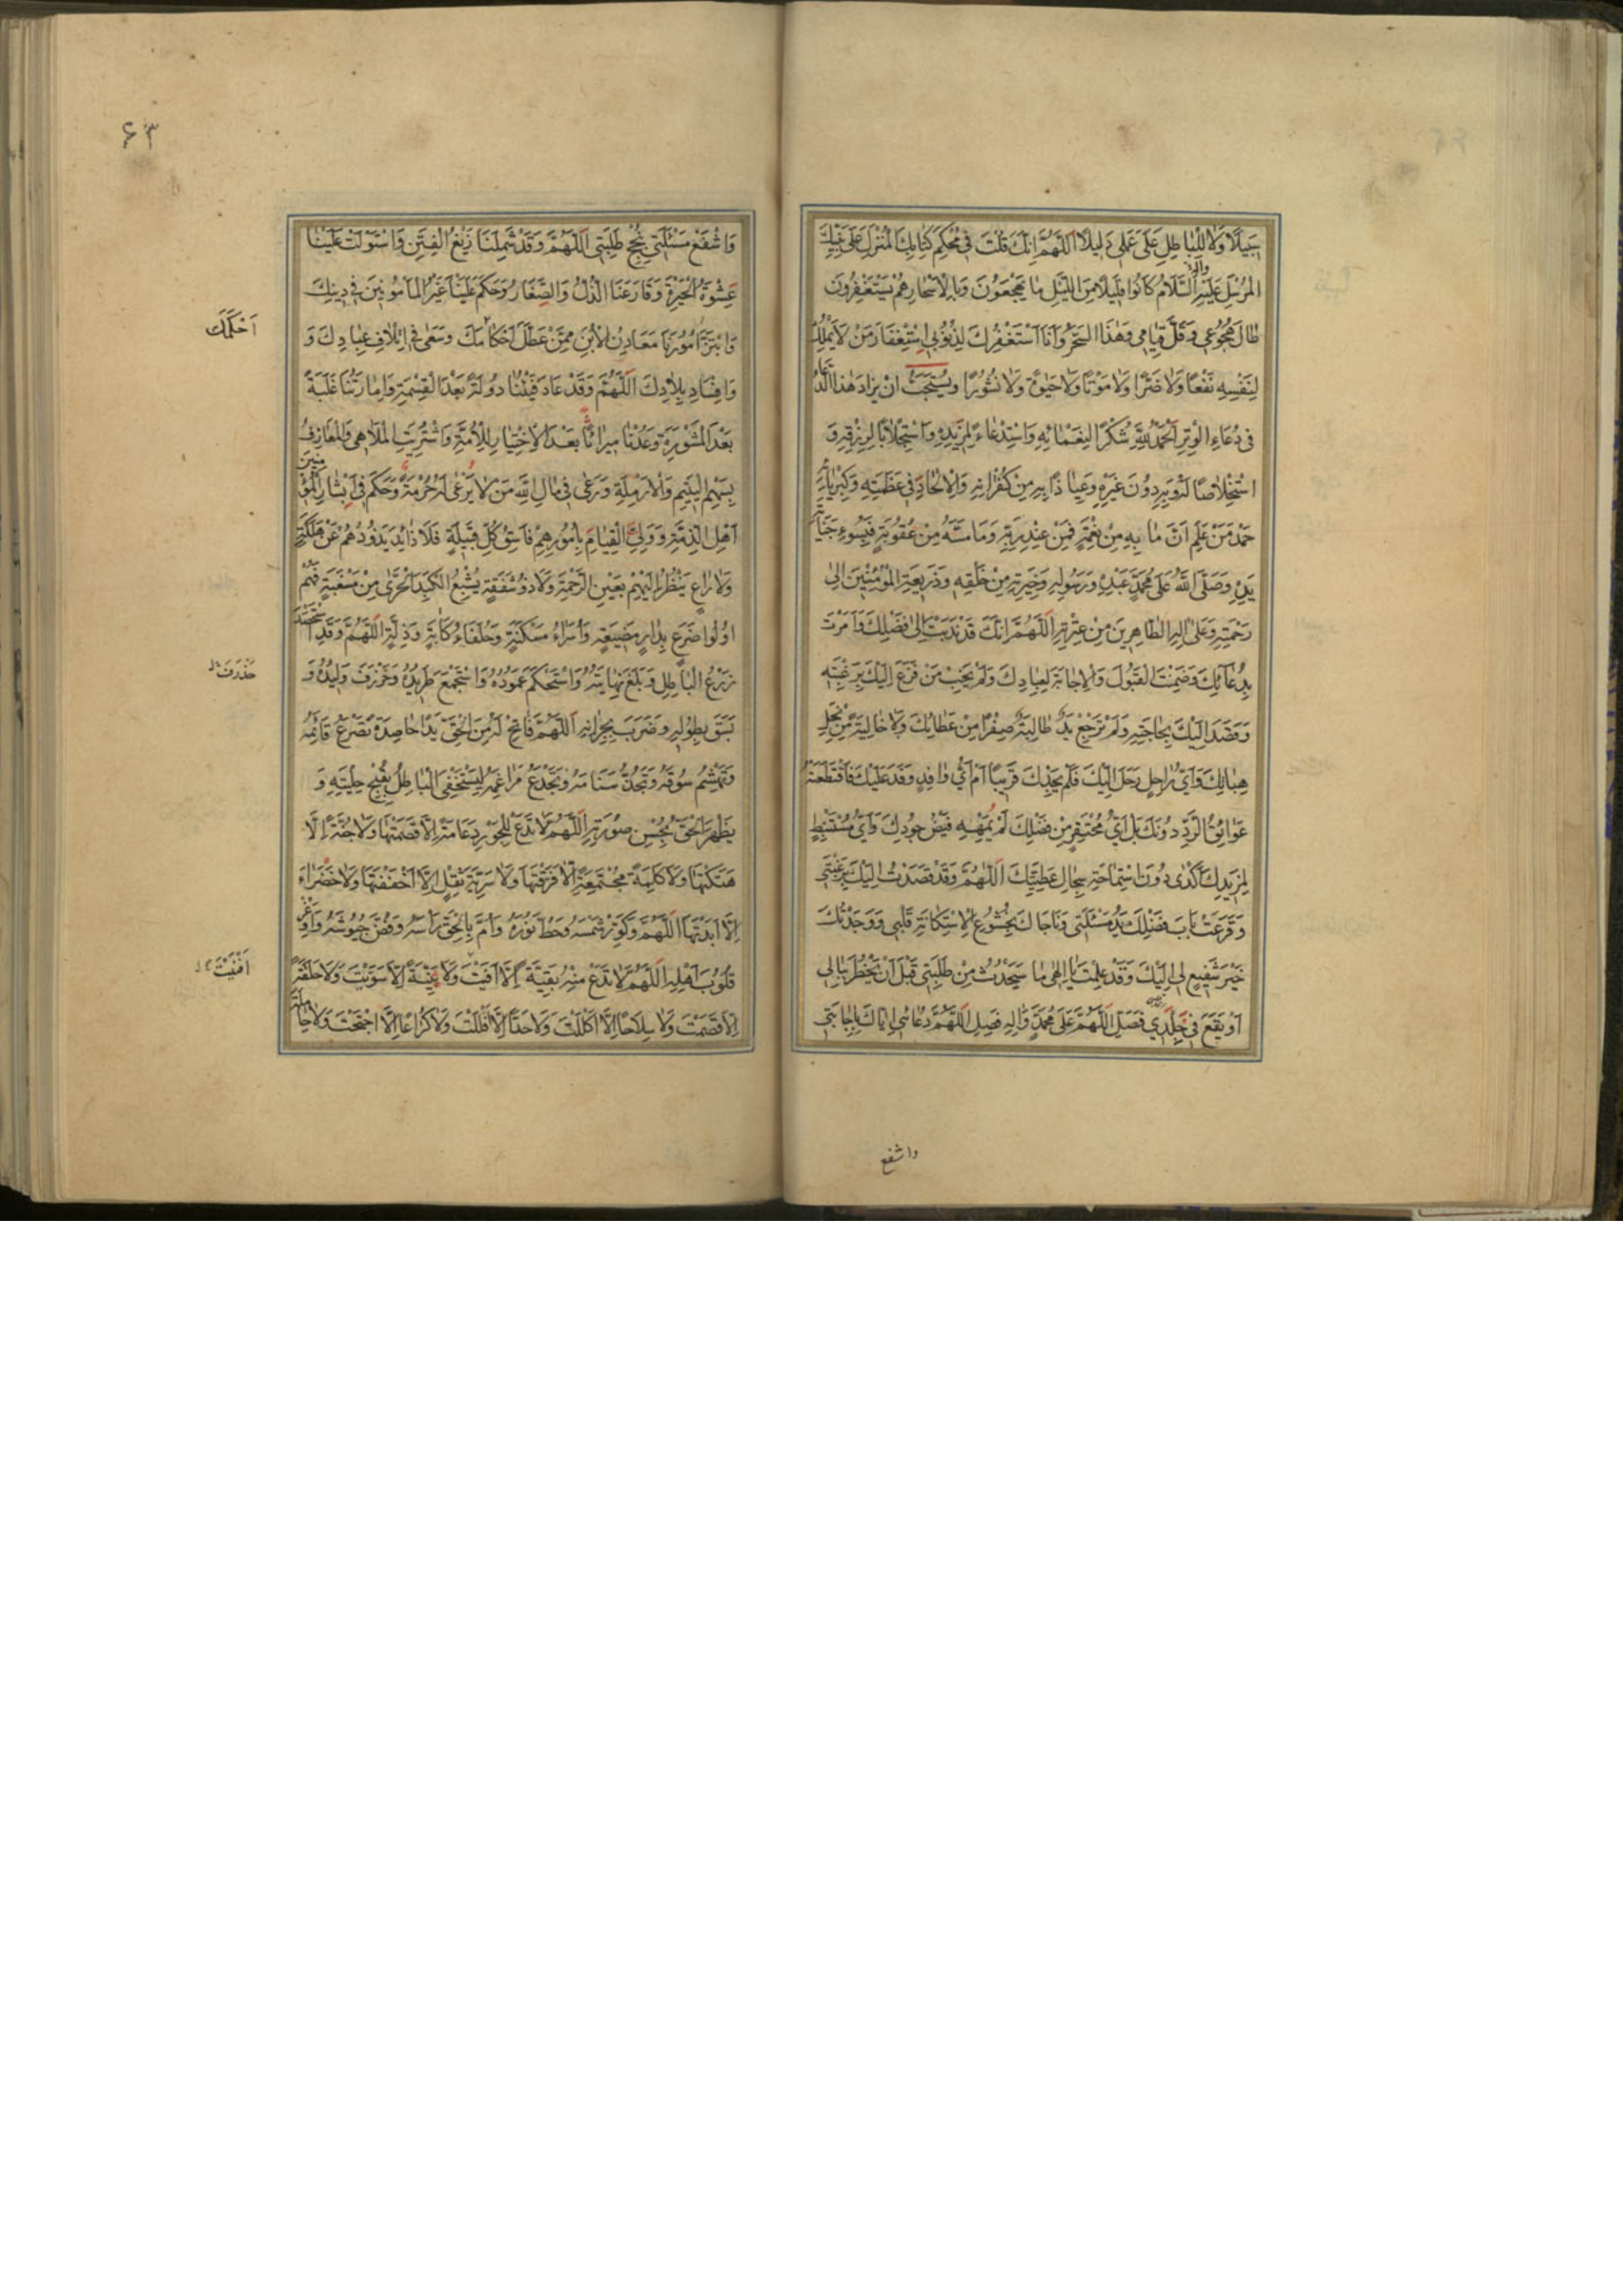 سَبِيلًا وَلَا لِلْبَاطِلِ عَلَى عَمَلِي دَلِيلًا اَللّهُمَّ اِنَّكَ قُلْتَ فِي مُحْكَمِ كِتَابِكَ الْمُنْزَلِ عَلَى نَبِيِّكَ
الْمُرْسَلِ عَلَيْهِ وَالِهِ السَّلَامُ كَانُوا قَلِيلًا مِنَ اللَّيْلِ مَا يَهْجَعُونَ وَبِالْاَسْحَارِ هُمْ يَسْتَغْفِرُونَ
طَالَ هُجُوعِي وَقَلَّ قِيَامِي وَهٰذَا السَّحَرُ وَاَنَا اَسْتَغْفِرُكَ لِذُنُوبِي اِسْتِغْفَارَ مَنْ لَا يَمْلِكُ
لِنَفْسِهِ نَفْعًا وَلَا ضَرًّا وَلَا مَوْتًا وَلَا حَيٰوةً وَلَا نُشُورًا وَيُسْتَحَبُّ اَنْ يُزَادَ هٰذَا الدُّعَاءُ
فِي دُعَاءِ الْوِتْرِ اَلْحَمْدُ لِلّهِ شُكْرًا لِنَعْمَائِهِ وَاسْتِدْعَاءً لِمَزِيدِهِ وَاسْتِجْلَابًا لِرِزْقِهِ وَ
اسْتِخْلَاصًا لَهُ وَبِهِ دُونَ غَيْرِهِ وَعِيَاذًا بِهِ مِنْ كُفْرَانِهِ وَالْاِلْحَادِ فِي عَظَمَتِهِ وَكِبْرِيَائِهِ
حَمْدَ مَنْ عَلِمَ اَنَّ مَا بِهِ مِنْ نِعْمَةٍ فَمِنْ عِنْدِ رَبِّهِ وَمَا مَسَّهُ مِنْ عُقُوبَةٍ فَبِسُوءِ جِنَايَةِ
يَدِهِ وَصَلَّى اللّهُ عَلَى مُحَمَّدٍ عَبْدِهِ وَرَسُولِهِ وَخِيَرَتِهِ مِنْ خَلْقِهِ وَذَرِيعَةِ الْمُؤْمِنِينَ اِلَى
رَحْمَتِهِ وَعَلَى الِهِ الطَّاهِرِينَ مِنْ عِتْرَتِهِ اَللّهُمَّ اِنَّكَ قَدْ نَدَبْتَ اِلَى فَضْلِكَ وَاَمَرْتَ
بِدُعَائِكَ وَضَمِنْتَ الْقَبُولَ وَالْاِجَابَةَ لِعِبَادِكَ وَلَمْ يَخِبْ مَنْ فَزِعَ اِلَيْكَ بِرَغْبَتِهِ
وَقَصَدَ اِلَيْكَ بِحَاجَتِهِ وَلَمْ تَرْجِعْ يَدٌ طَالِبَةٌ صِفْرًا مِنْ عَطَائِكَ وَلَا خَالِيَةً مِنْ نِحَلِ
هِبَاتِكَ وَاَيُّ رَاحِلٍ رَحَلَ اِلَيْكَ فَلَمْ يَجِدْكَ قَرِيبًا اَمْ اَيُّ وَافِدٍ وَفَدَ عَلَيْكَ فَاقْتَطَعَتْهُ
عَوَائِقُ الرَّدِّ دُونَكَ بَلْ اَيُّ مُحْتَفِرٍ مِنْ فَضْلِكَ لَمْ يُمْهِهِ فَيْضُ جُودِكَ وَاَيُّ مُسْتَنْبِطٍ
لِمَزِيدِكَ اَكْدَى دُونَ اسْتِمَاحَةِ سِجَالِ عَطِيَّتِكَ اَللّهُمَّ وَقَدْ قَصَدْتُ اِلَيْكَ بِرَغْبَتِي
وَقَرَعَتْ بَابَ فَضْلِكَ يَدُ مَسْئَلَتِي وَنَاجَاكَ بِخُشُوعِ الْاِسْتِكَانَةِ قَلْبِي وَوَجَدْتُكَ
خَيْرَ شَفِيعٍ لِي اِلَيْكَ وَقَدْ عَلِمْتَ يَا اِلٰهِي مَا سَيَحْدُثُ مِنْ طَلِبَتِي قَبْلَ اَنْ يَخْطُرَ بِبَالِي
اَوْ يَقَعَ فِي خَلَدِي فَصَلِّ اَللّهُمَّ عَلَى مُحَمَّدٍ وَالِهِ فَصِلِ اللّهُمَّ دُعَائِي اِيَّاكَ بِاِجَابَتِي
واشفع
۶۳
وَاشْفَعْ مَسْئَلَتِي بِنُجْحِ طَلِبَتِي اَللّهُمَّ وَقَدْ شَمِلَنَا زَيْغُ الْفِتَنِ وَاسْتَوْلَتْ عَلَيْنَا
عَشْوَةُ الْحَيْرَةِ وَقَارَعَنَا الذُّلُّ وَالصَّغَارُ وَحَكَمَ عَلَيْنَا غَيْرُ الْمَأْمُونِينَ فِي دِينِكَ
وَابْتَزَّ اُمُورَنَا مَعَادِنُ الْاُبَنِ مِمَّنْ عَطَّلَ اَحْكَامَكَ وَسَعَى فِي اِتْلَافِ عِبَادِكَ وَ
اَحْكَمَكَ
وَاِفْسَادِ بِلَادِكَ اَللّهُمَّ وَقَدْ عَادَ فَيْئُنَا دُولَةً بَعْدَ الْقِسْمَةِ وَاِمَارَتُنَا غَلَبَةً
بَعْدَ الْمَشْوَرَةِ وَعُدْنَا مِيرَاثًا بَعْدَ الْاِخْتِيَارِ لِلْاُمَّةِ وَاشْتُرِيَتِ الْمَلَاهِي وَالْمَعَازِفُ
بِسَهْمِ الْيَتِيمِ وَالْاَرْمِلَةِ وَرَعَى فِي مَالِ اللّهِ مَنْ لَا يَرْعَى لَهُ حُرْمَةً وَحَكَمَ فِي اَبْشَارِ الْمُؤْمِنِينَ
اَهْلُ الذِّمَّةِ وَوَلِيَ الْقِيَامَ بِاُمُورِهِمْ فَاسِقُ كُلِّ قَبِيلَةٍ فَلَا ذَائِدَ يَذُودُهُمْ عَنْ هَلَكَةٍ
وَلَا رَاعٍ يَنْظُرُ اِلَيْهِمْ بِعَيْنِ الرَّحْمَةِ وَلَا ذُو شَفَقَةٍ يُشْبِعُ الْكَبِدَ الْحَرَّى مِنْ مَسْغَبَةٍ فَهُمْ
اُولُوا ضَرَعٍ بِدَارِ مَضِيعَةٍ وَاُسَرَاءُ مَسْكَنَةٍ وَحُلَفَاءُ كَابَةٍ وَذِلَّةٍ اَللّهُمَّ وَقَدِ اسْتَحْصَدَ
زَرْعُ الْبَاطِلِ وَبَلَغَ نِهَايَتَهُ وَاسْتَحْكَمَ عَمُودُهُ وَاسْتَجْمَعَ طَرِيدُهُ وَخَذْرَفَ وَلِيدُهُ وَ
بَسَقَ بِطُولِهِ وَضَرَبَ بِجِرَانِهِ اَللّهُمَّ فَاَتِحْ لَهُ مِنَ الْحَقِّ يَدًا حَاصِدَةً تَصْرَعُ قَائِمَهُ
وَتَهْشِمُ سُوقَهُ وَتَجُذُّ سَنَامَهُ وَتَجْدَعُ مَرَاغِمَهُ لِيَسْتَخْفِيَ الْبَاطِلُ بِقُبْحِ حِلْيَتِهِ وَ
يَظْهَرَ الْحَقُّ بِحُسْنِ صُورَتِهِ اَللّهُمَّ لَا تَدَعْ لِلْجَوْرِ دِعَامَةً اِلَّا قَصَمْتَهَا وَلَا جُنَّةً اِلَّا
هَتَكْتَهَا وَلَا كَلِمَةً مُجْتَمِعَةً اِلَّا فَرَّقْتَهَا وَلَا سَرِيَّةَ ثِقْلٍ اِلَّا اَخْفَفْتَهَا وَلَا خَضْرَاءَ
اِلَّا اَبَدْتَهَا اَللّهُمَّ وَكَوِّرْ شَمْسَهُ وَحُطَّ نُورَهُ وَاُمَّ بِالْحَقِّ رَاْسَهُ وَفُضَّ جُيُوشَهُ وَاَوْغِرْ
قُلُوبَ اَهْلِهِ اَللّهُمَّ لَا تَدَعْ مِنْهُ بَقِيَّةً اِلَّا اَفْنَيْتَ وَلَا بِنْيَةً اِلَّا سَوَّيْتَ وَلَا حَلْقَةً
اَفْنَيْتَ
اِلَّا قَصَمْتَ وَلَا سِلَاحًا اِلَّا اَكْلَلْتَ وَلَا حَدًّا اِلَّا فَلَلْتَ وَلَا كُرَاعًا اِلَّا اجْتَحْتَ وَلَا حَامِلَةَ